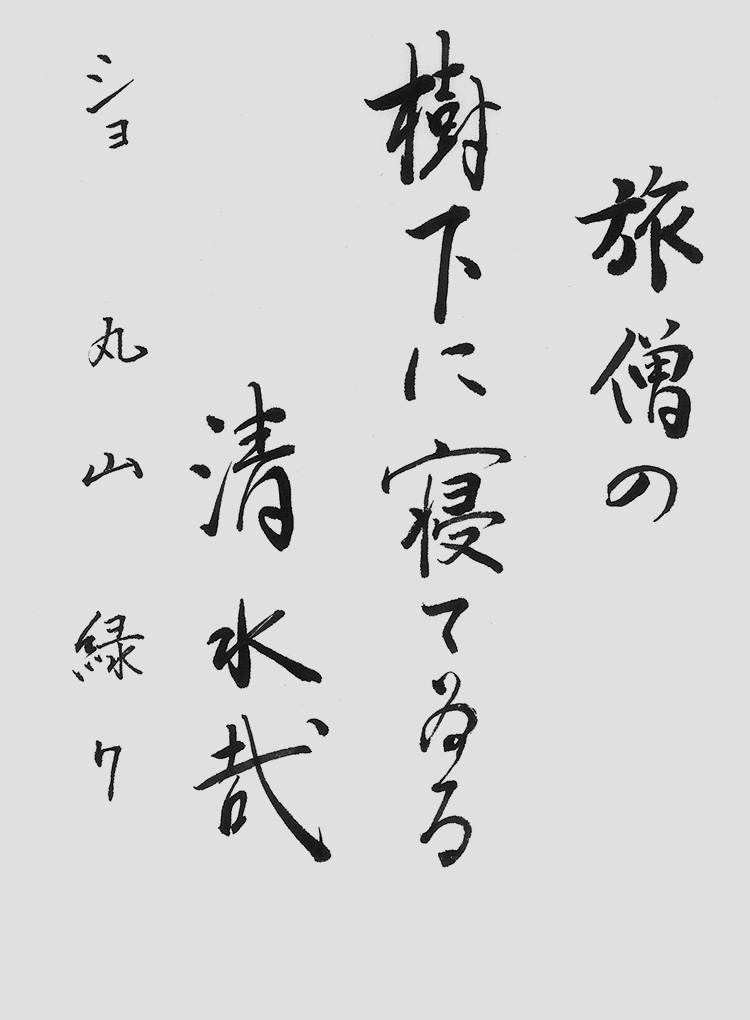 旅僧の
樹下に寝てゐる
清水哉
ショ 丸山緑ク